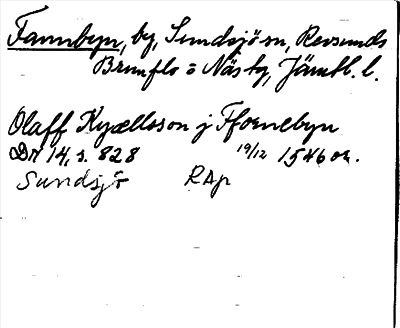 Fannbyn, by, Sundsjö sn, Revsunds
Brunflo o Näs tg, Jämtl. l.
Olaff Kyællsson j Ffornebyn
DN 14, s. 828 19/12 1546 or.
Sundsjö RAp